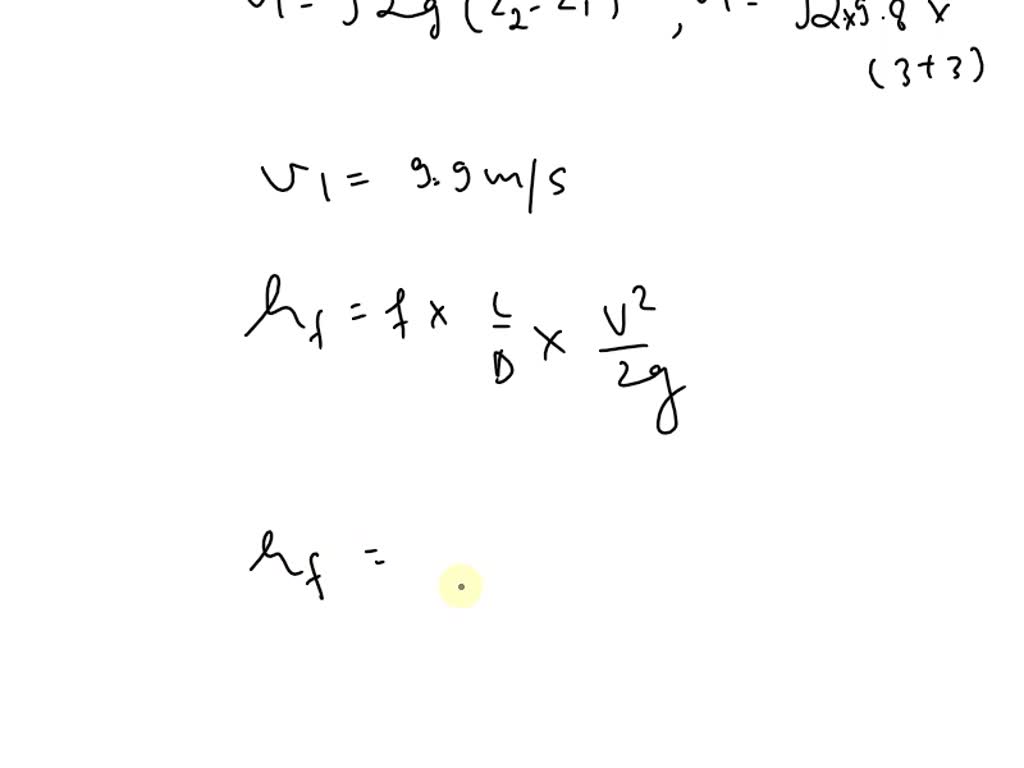 v1 = √2g (z2 - z1) , v1 = √2×9.8 ×
(3+3)
v1 = 9.9 m/s
hf = f × L/D × V²/2g
hf =